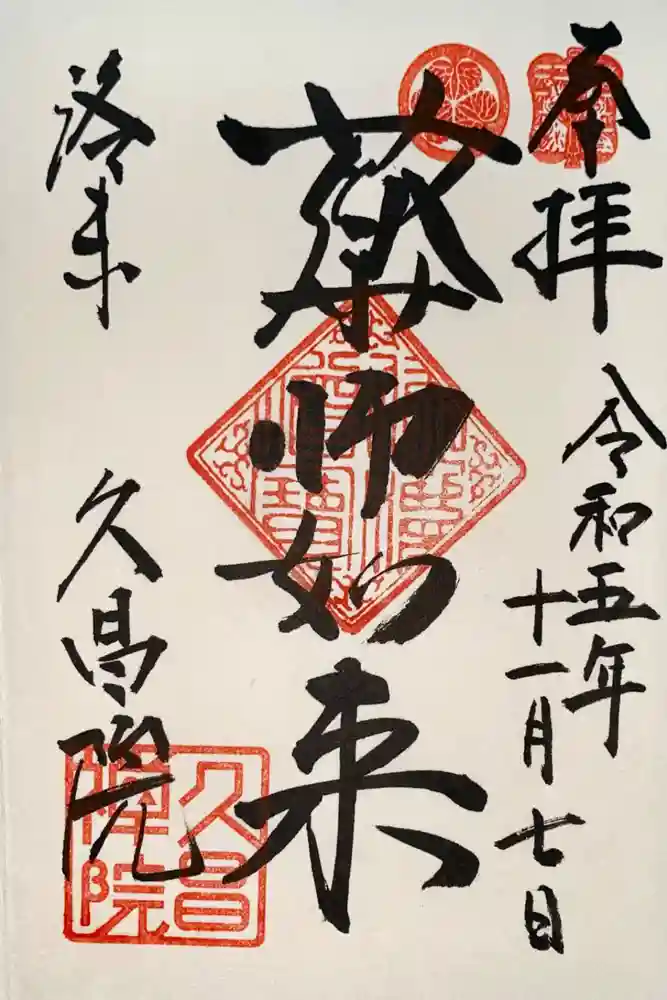 奉拝
令和五年
十一月七日
薬師如来
洛東
久昌院
久昌
禪院